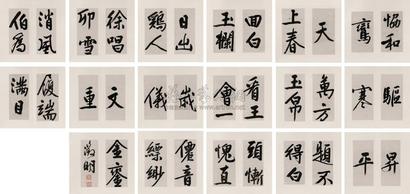 恊和
鸞
天
上春
回白
玉欄
日出
鷄人
徐唱
卯雪
消風
伯為
驅
寒
萬方
玉帛
看王
會一
歲
儀
文
重
履端
滿目
昇
平
題不
得白
頭慚
愧直
僊音
縹緲
金鑾
徵明